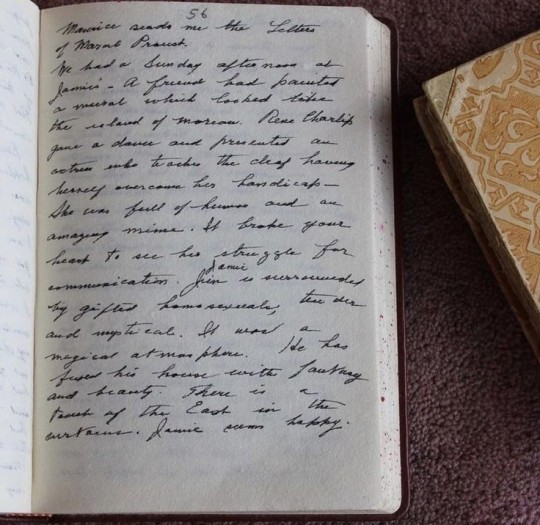 56
Maurice sends me the Letters
of Marcel Proust.
We had a Sunday afternoon at
Jamie's - A friend had painted
a mural which looked like
the island of Moreau. Rene Charlip
gave a dance and presented an
actress who teaches the deaf having
herself overcome her handicap -
She was full of humor and an
amazing mime. It broke your
heart to see her struggle for
communication. Jamie is surrounded
by gifted homosexuals, tender
and mystical. It was a
magical atmosphere. He has
fused his house with fantasy
and beauty. There is a
touch of the East in the
curtains. Jamie seems happy.